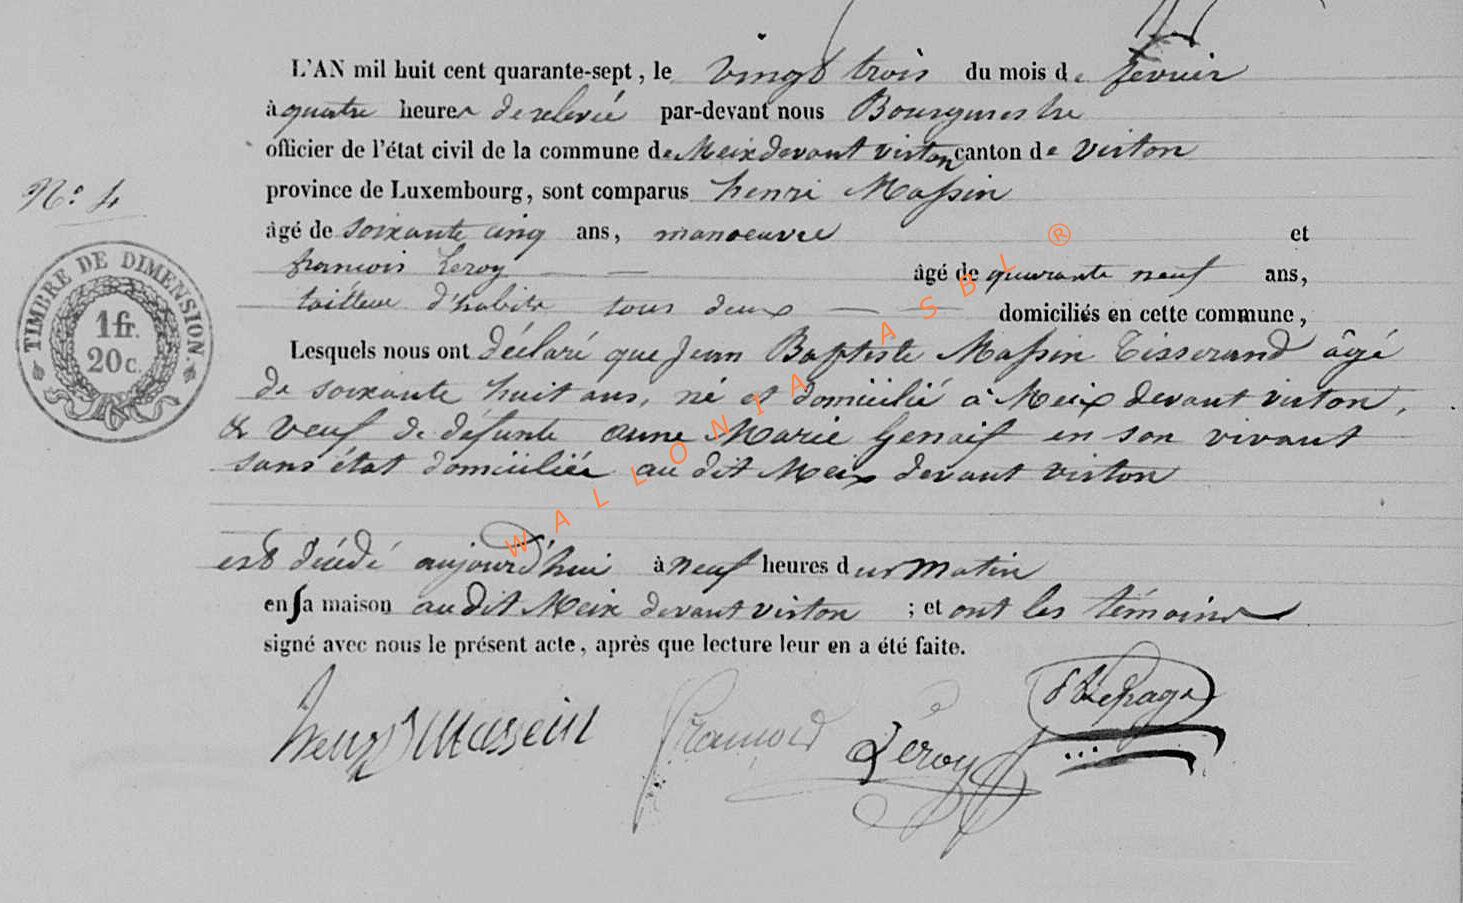 L'AN mil huit cent quarante-sept, le vingt trois du mois de fevrier
à quatre heures de relevée par-devant nous Bourgmestre
officier de l'état civil de la commune de Meix devant virton canton de Virton
N° 4
province de Luxembourg, sont comparus henri Massin
âgé de soixante cinq ans, manoeuvre et
françois Leroy âgé de quarante neuf ans,
tailleur d'habits tous deux domiciliés en cette commune,
TIMBRE DE DIMENSION.
1 fr.
20 c.
Lesquels nous ont déclaré que Jean Baptiste Massin Tisserand âgé
de soixante huit ans, né et domicilié à Meix devant virton,
& veuf de défunte anne Marie Genaif en son vivant
sans état domiciliée au dit Meix devant virton
est décédé aujourd'hui à neuf heures du matin
en sa maison au dit Meix devant virton ; et ont les témoins
signé avec nous le présent acte, après que lecture leur en a été faite.
henry Massein Leroy Lepage
WALLONIA ASBL ®